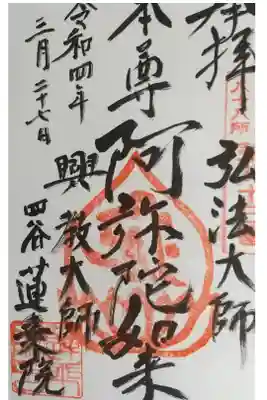 奉拝
弘法大師
本尊阿弥陀如来
興教大師
令和四年
三月二十七日
四谷蓮乗院